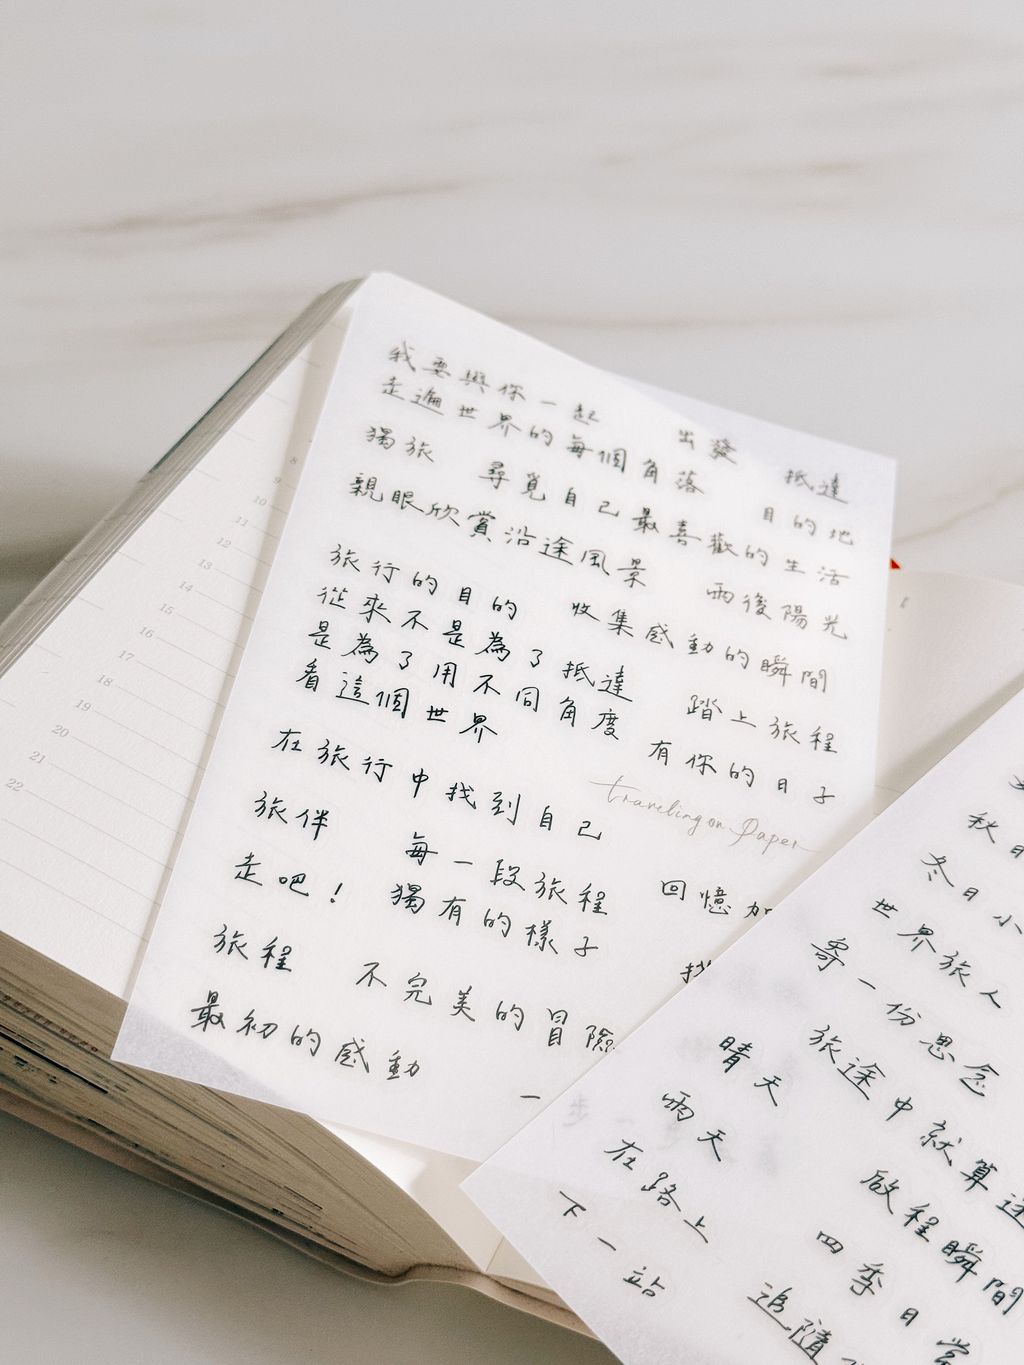 我要與你一起
走遍世界的每個角落
出發
抵達
獨旅
尋覓自己最喜歡的生活
目的地
親眼欣賞沿途風景
雨後陽光
旅行的目的
從來不是為了抵達
是為了用不同角度
看這個世界
收集感動的瞬間
踏上旅程
有你的日子
在旅行中找到自己
traveling on Paper
旅伴
每一段旅程
獨有的樣子
回憶加
走吧！
旅程
不完美的冒險
找
最初的感動
一步一
8
9
10
11
12
13
14
15
16
17
18
19
20
21
22
秋日
冬日小
世界旅人
寄一份思念
晴天
旅途中就算迷
雨天
啟程瞬間
在路上
四季日常
下一站
追隨